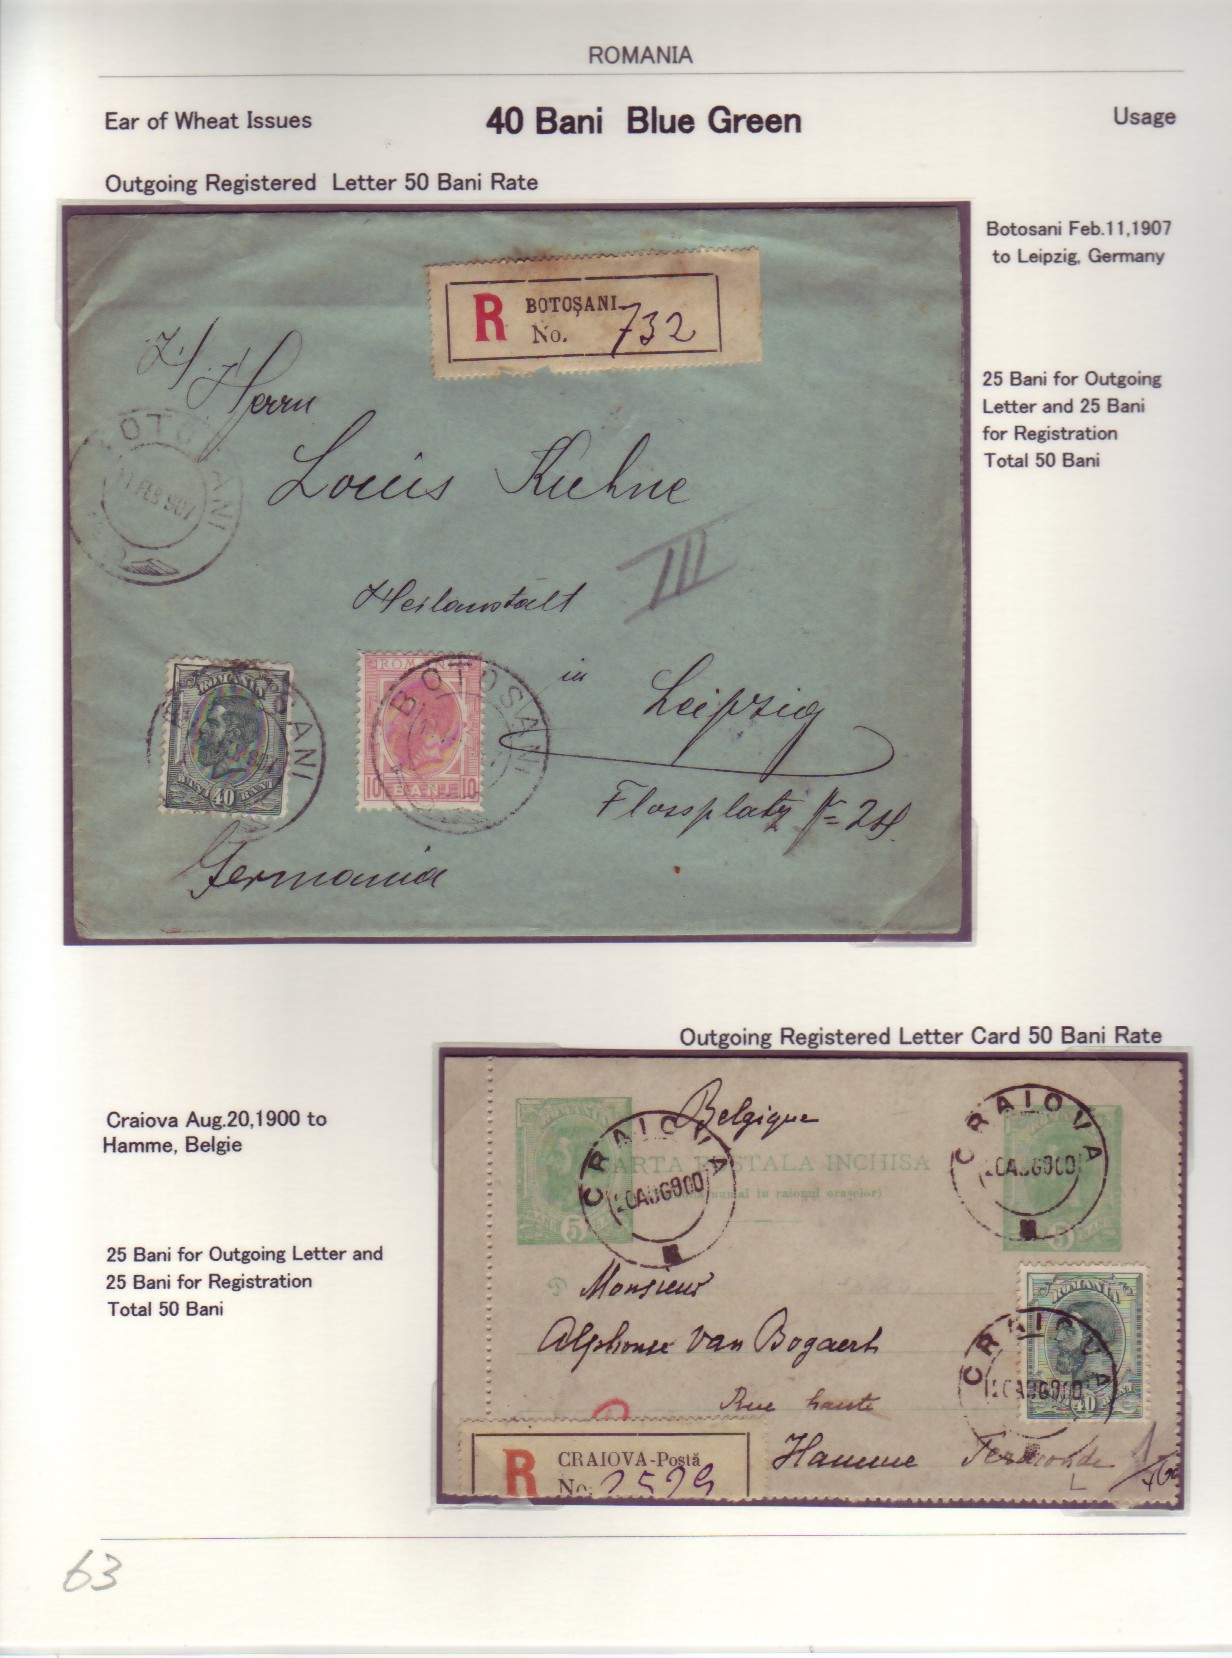 ROMANIA
Ear of Wheat Issues
40 Bani Blue Green
Usage
Outgoing Registered Letter 50 Bani Rate
Botosani Feb.11,1907
to Leipzig, Germany
25 Bani for Outgoing
Letter and 25 Bani
for Registration
Total 50 Bani
R BOTOȘANI
No. 732
Herrn
Louis Kuhne
III
Heilanstalt
in
Leipzig
Flossplatz 24
Germania
BOTOSANI
11 FEB 907
ROMANIA
40 BANI
ROMANIA
10 BANI 10
BOTOSANI
Outgoing Registered Letter Card 50 Bani Rate
Craiova Aug.20,1900 to
Hamme, Belgie
25 Bani for Outgoing Letter and
25 Bani for Registration
Total 50 Bani
Belgique
CARTA POSTALA INCHISA
numai in raionul orașelor)
CRAIOVA
20AUG900
CRAIOVA
20AUG900
5
5
Monsieur
Alphonse Van Bogaert
Rue haute
Hamme Termonde
ROMANIA
40
CRAIOVA
20AUG900
R CRAIOVA-Postă
No. 2529
63